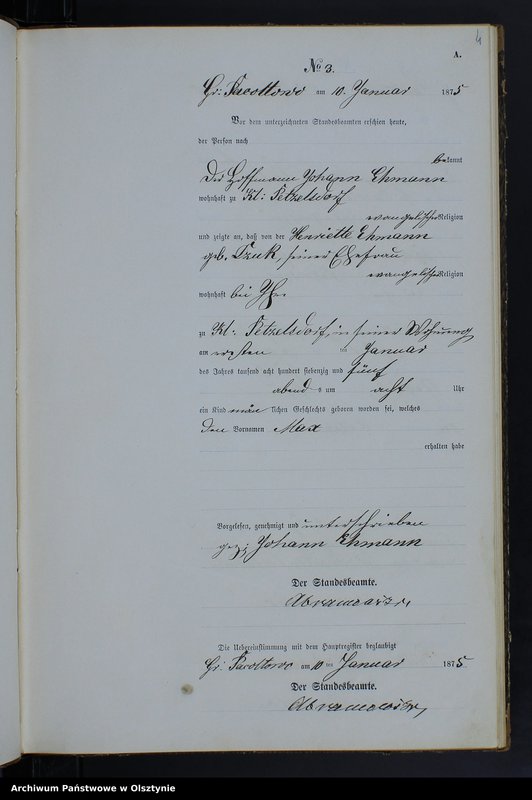 4
A.
No 3.
Gr: am 10. Januar 1875
Vor dem unterzeichneten Standesbeamten erschien heute,
der Person nach
bekannt
Johann Ehmann
wohnhaft zu Kl: Petzelsdorf
evangelischer Religion
und zeigte an, daß von der Henriette Ehmann
geb. seiner Ehefrau
evangelischer Religion
wohnhaft bei ihm
zu Kl: Petzelsdorf, in seiner Wohnung
am ersten ten Januar
des Jahres tausend acht hundert siebenzig und fünf
abends um acht Uhr
ein Kind männlichen Geschlechts geboren worden sei, welches
den Vornamen Max
erhalten habe
Vorgelesen, genehmigt und unterschrieben
gez: Johann Ehmann
Der Standesbeamte.
Die Uebereinstimmung mit dem Hauptregister beglaubigt
Gr: am 10 ten Januar 1875
Der Standesbeamte.
Archiwum Państwowe w Olsztynie